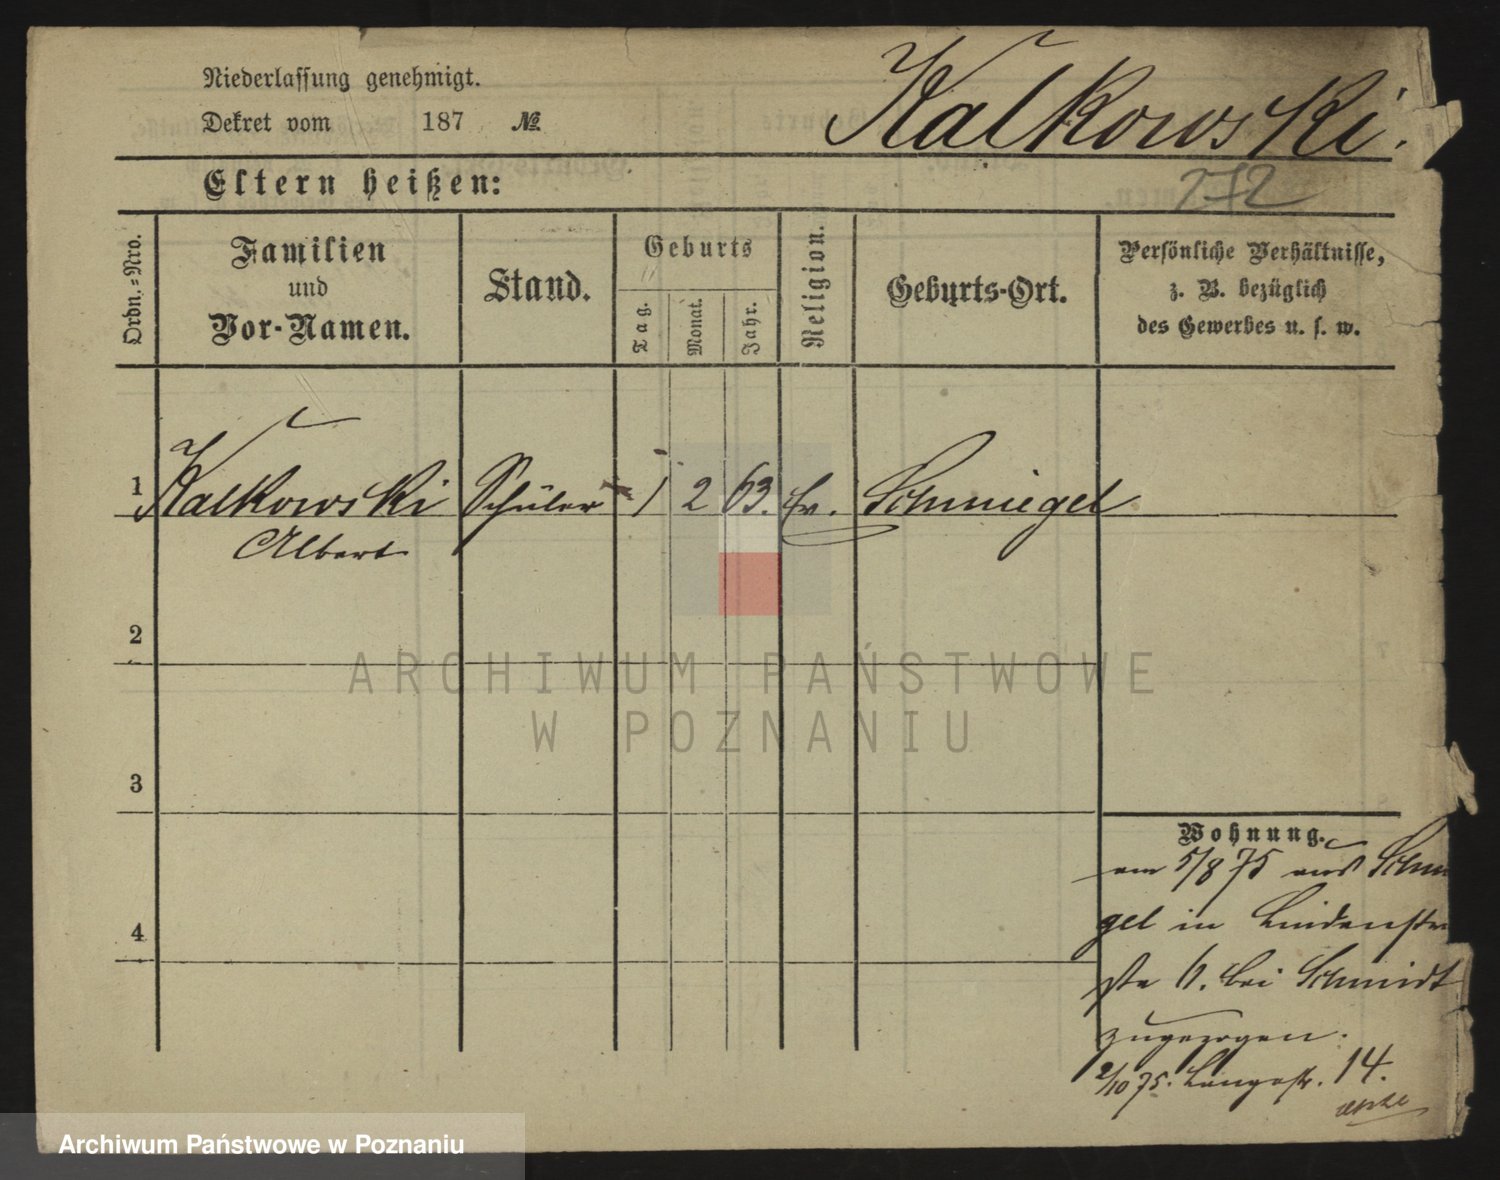 Niederlassung genehmigt.
Dekret vom 187 №
Kalkowski.
Eltern heißen:
272
Ordn.-Nro.
Familien
und
Vor-Namen.
Stand.
Geburts
Tag.
Monat.
Jahr.
Religion.
Geburts-Ort.
Persönliche Verhältnisse,
z. B. bezüglich
des Gewerbes u. s. w.
1 Kalkowski Schüler 1 2 63. Ev. Schmiegel
Albert
2
3
4
Wohnung.
am 5/8 75 aus Schmie
gel in Lindenstra
ße 6. bei Schmidt
zugezogen.
2/10 75. Langestr. 14.
ARCHIWUM PAŃSTWOWE
W POZNANIU
Archiwum Państwowe w Poznaniu